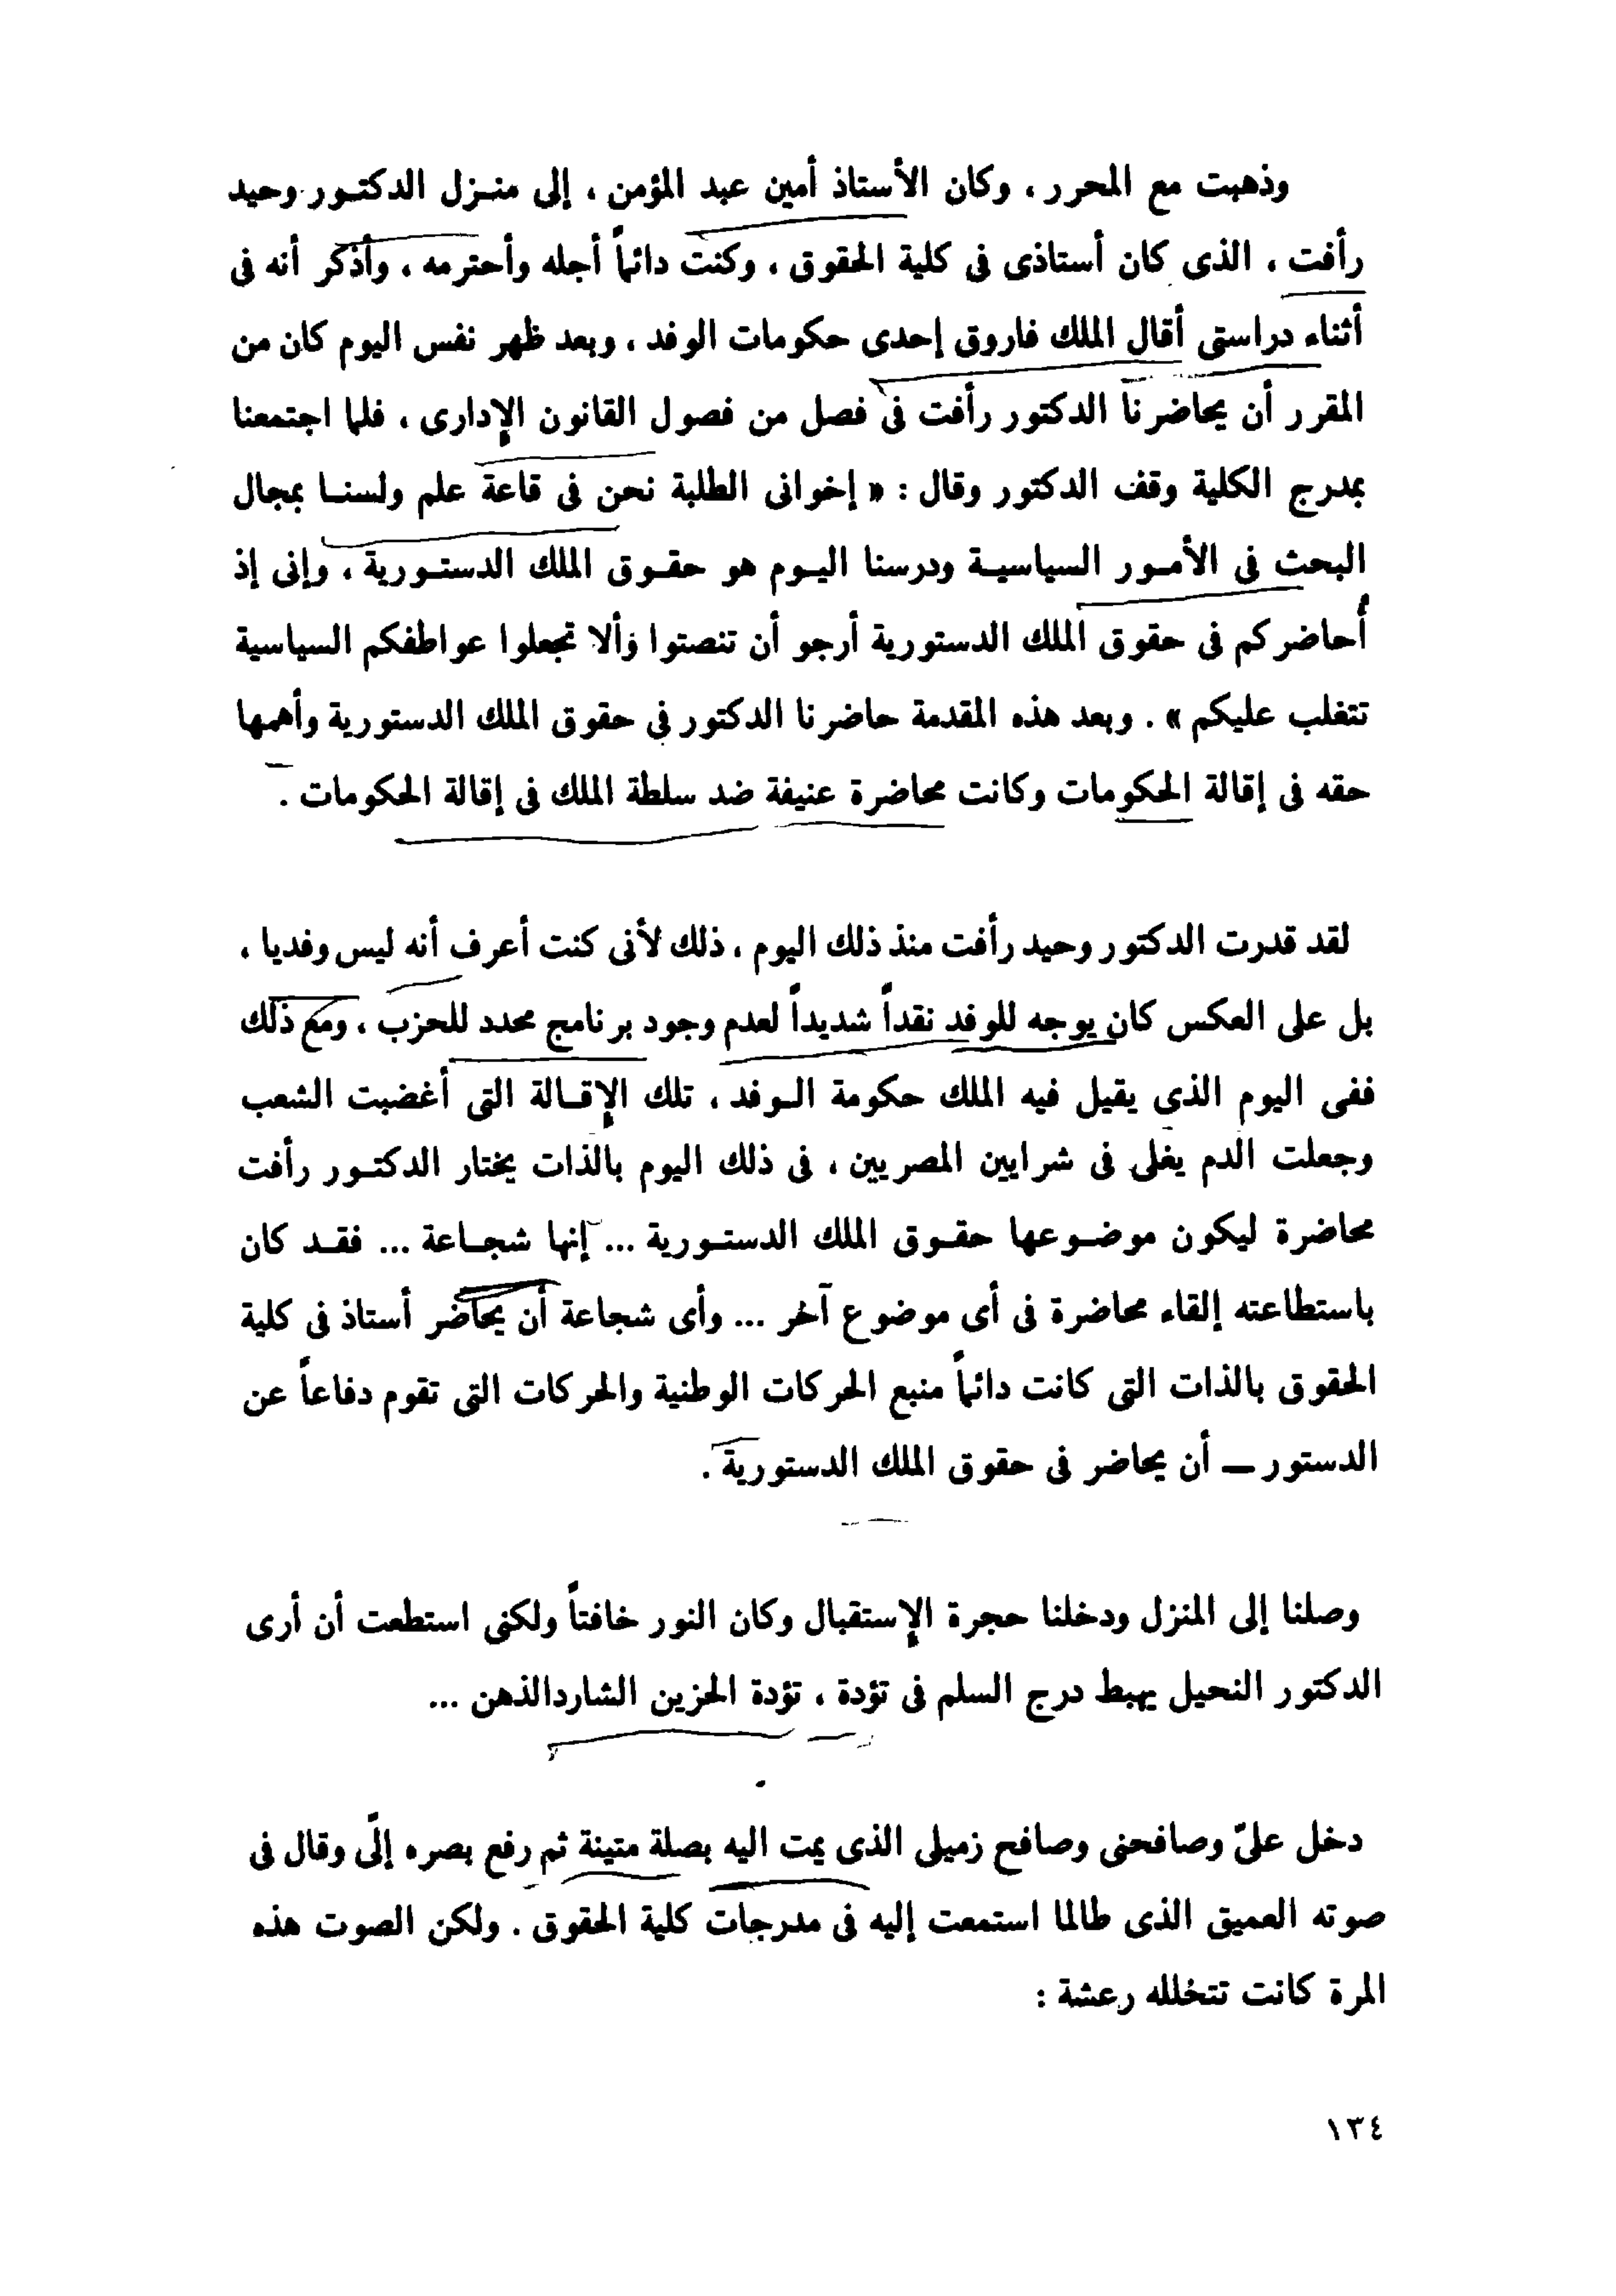 وذهبت مع المحرر ، وكان الأستاذ أمين عبد المؤمن ، إلى منـزل الدكتـور وحيد
رأفت ، الذى كان أستاذى فى كلية الحقوق ، وكنت دائماً أجله وأحترمه ، وأذكر أنه فى
أثناء دراستى أقال الملك فاروق إحدى حكومات الوفد ، وبعد ظهر نفس اليوم كان من
المقرر أن يحاضرنا الدكتور رأفت فى فصل من فصول القانون الإدارى ، فلما اجتمعنا
بمدرج الكلية وقف الدكتور وقال : « إخوانى الطلبة نحن فى قاعة علم ولسنـا بمجال
البحث فى الأمـور السياسيـة ودرسنا اليـوم هو حقـوق الملك الدستـورية ، وإنى إذ
أحاضركم فى حقوق الملك الدستورية أرجو أن تنصتوا وألا تجعلوا عواطفكم السياسية
تتغلب عليكم » . وبعد هذه المقدمة حاضرنا الدكتور فى حقوق الملك الدستورية وأهمها
حقه فى إقالة الحكومات وكانت محاضرة عنيفة ضد سلطة الملك فى إقالة الحكومات .
لقد قدرت الدكتور وحيد رأفت منذ ذلك اليوم ، ذلك لأنى كنت أعرف أنه ليس وفديا ،
بل على العكس كان يوجه للوفد نقداً شديداً لعدم وجود برنامج محدد للحزب ، ومع ذلك
ففى اليوم الذى يقيل فيه الملك حكومة الـوفد ، تلك الإقـالة التى أغضبت الشعب
وجعلت الدم يغلى فى شرايين المصريين ، فى ذلك اليوم بالذات يختار الدكتـور رأفت
محاضرة ليكون موضـوعها حقـوق الملك الدستـورية ... إنها شجـاعة ... فقـد كان
باستطاعته إلقاء محاضرة فى أى موضوع آخر ... وأى شجاعة أن يحاضر أستاذ فى كلية
الحقوق بالذات التى كانت دائماً منبع الحركات الوطنية والحركات التى تقوم دفاعاً عن
الدستور ــ أن يحاضر فى حقوق الملك الدستورية .
وصلنا إلى المنزل ودخلنا حجرة الإستقبال وكان النور خافتاً ولكنى استطعت أن أرى
الدكتور النحيل يهبط درج السلم فى تؤدة ، تؤدة الحزين الشاردالذهن ...
دخل علىّ وصافحنى وصافح زميلى الذى يمت اليه بصلة متينة ثم رفع بصره إلّى وقال فى
صوته العميق الذى طالما استمعت إليه فى مدرجات كلية الحقوق . ولكن الصوت هذه
المرة كانت تتخلله رعشة :
١٣٤